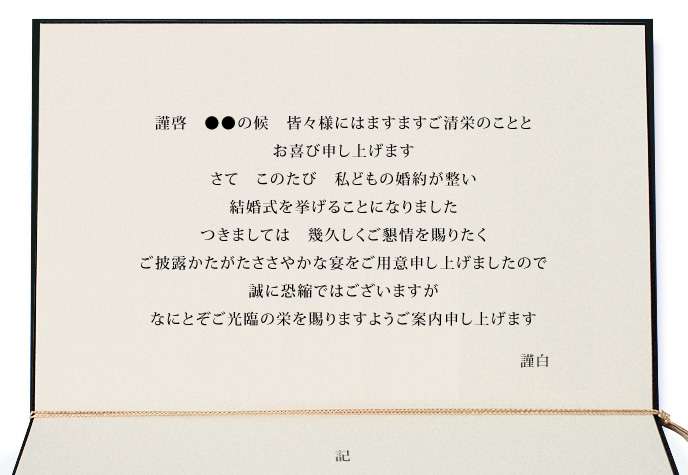 謹啓　●●の候　皆々様にはますますご清栄のことと
お喜び申し上げます
さて　このたび　私どもの婚約が整い
結婚式を挙げることになりました
つきましては　幾久しくご懇情を賜りたく
ご披露かたがたささやかな宴をご用意申し上げましたので
誠に恐縮ではございますが
なにとぞご光臨の栄を賜りますようご案内申し上げます
謹白
記